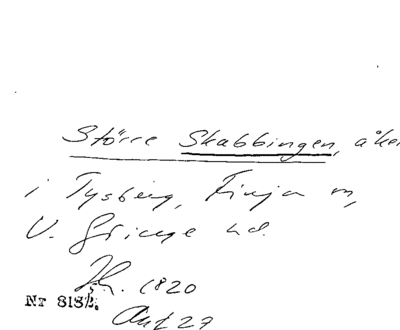 Större Skabbingen, åker
i Tysberg, Finja sn,
V. Göinge hd.
1820
Nr 818
Akt 27